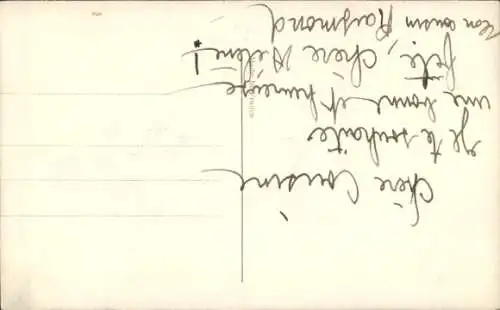 Chère Cousine
Je te souhaite
une bonne et heureuse
fête, chère Hélène!
Ton cousin Raymond